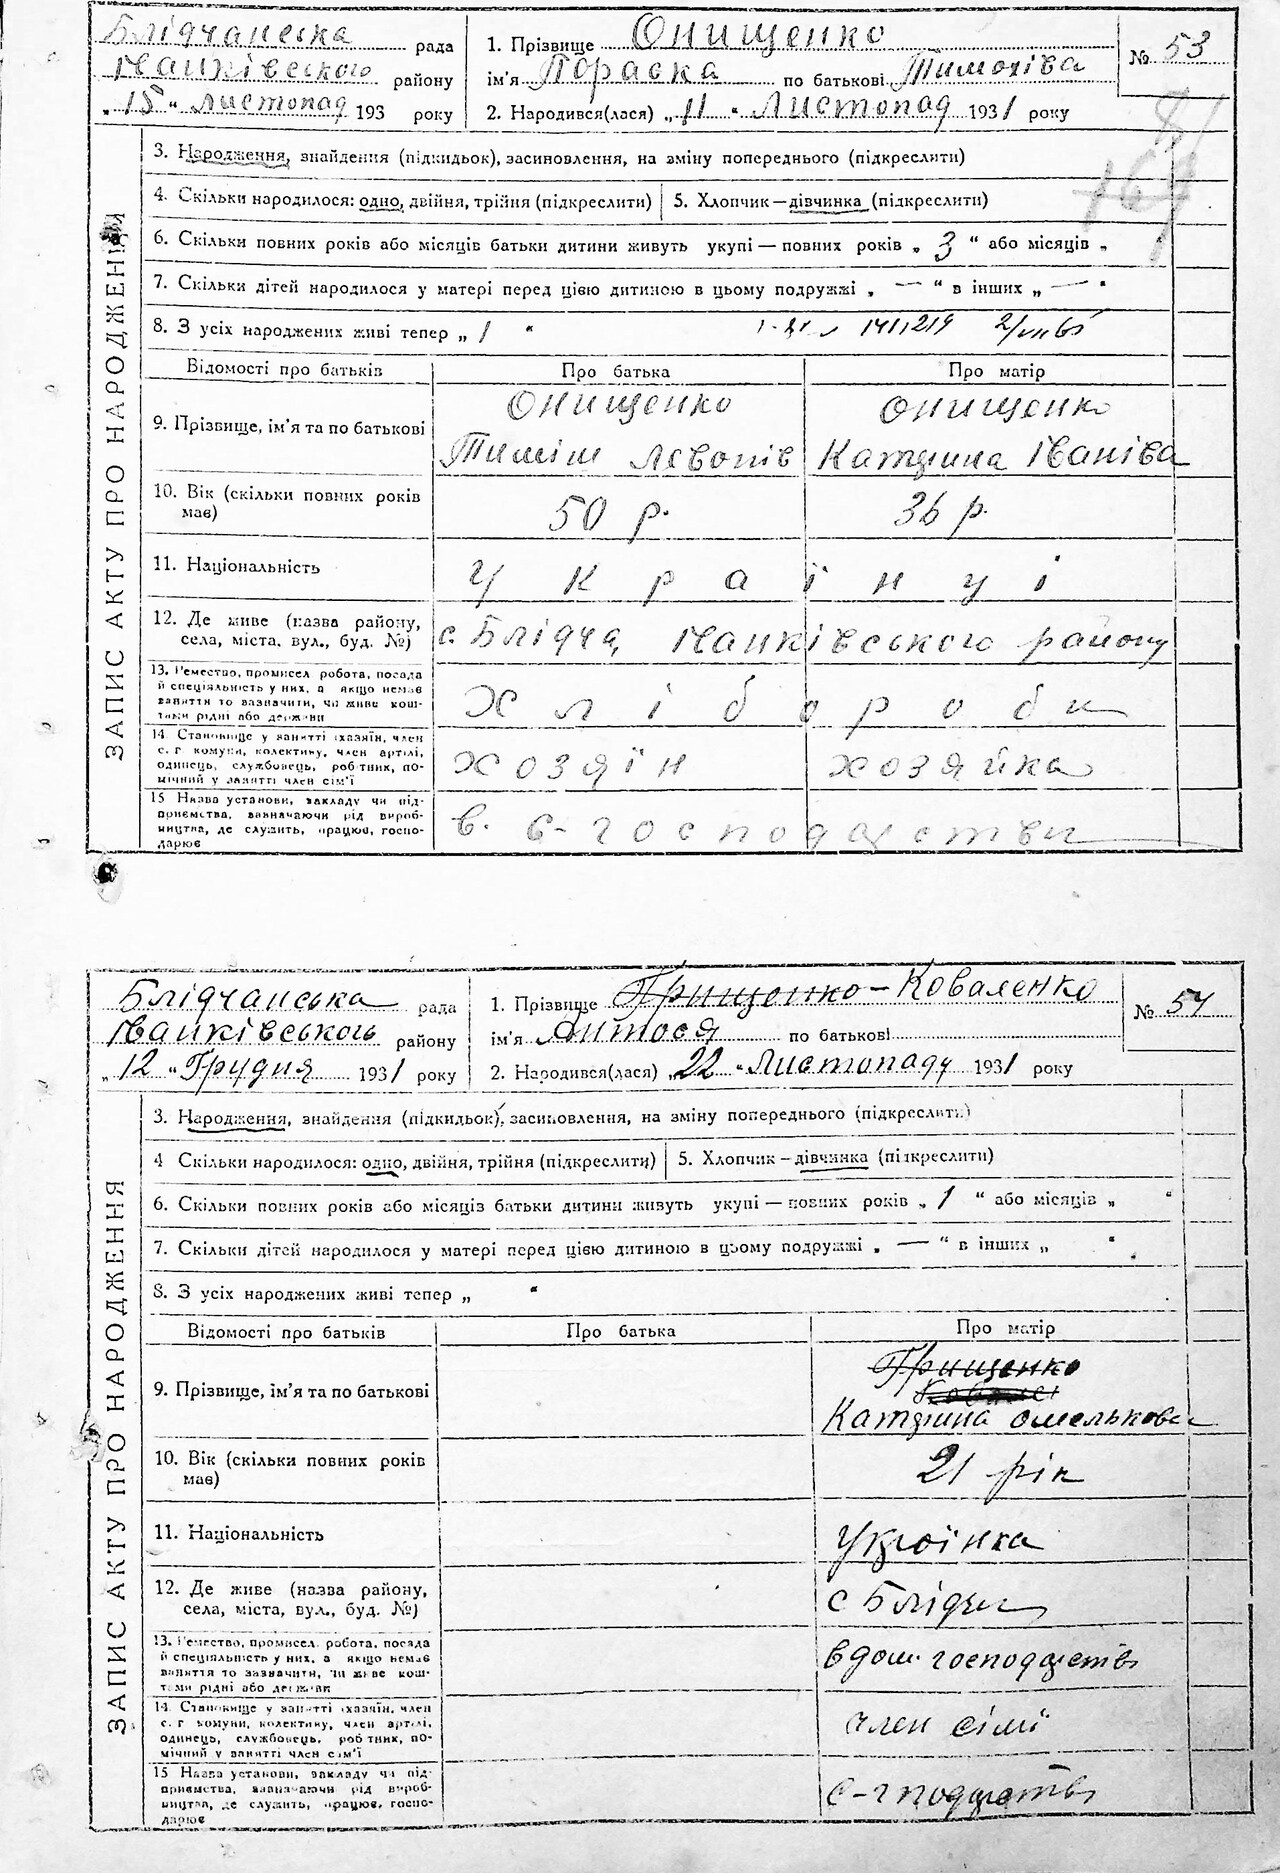 Блідчанська рада
Іванківського району
„15“ Листопад 193 року
1. Прізвище Онищенко
ім'я Параска по батькові Тимохіва
2. Народився(лася) „11“ Листопад 1931 року
№ 53
ЗАПИС АКТУ ПРО НАРОДЖЕННЯ
3. Народження, знайдення (підкидьок), засиновлення, на зміну попереднього (підкреслити)
4. Скільки народилося: одно, двійня, трійня (підкреслити) 5. Хлопчик—дівчинка (підкреслити)
6. Скільки повних років або місяців батьки дитини живуть укупі — повних років „ 3 “ або місяців „
7. Скільки дітей народилося у матері перед цією дитиною в цьому подружжі „ — “ в інших „ — “
8. З усіх народжених живі тепер „ 1 “
Відомості про батьків Про батька Про матір
9. Прізвище, ім'я та по батькові
Онищенко Онищенко
Тиміш Левонів Катерина Іваніва
10. Вік (скільки повних років має) 50 р. 36 р.
11. Національність Українці
12. Де живе (назва району, села, міста, вул., буд. №) с. Блідча, Іванківського району
13. Ремество, промисел робота, посада
й спеціяльність у них, а якщо немає
заняття то зазначити, чи живе кош-
тами рідні або держави
Хлібороби
14. Становище у занятті (хазяїн, член
с. г. комуни, колективу, член артілі,
одинець, службовець, робітник, по-
мічний у занятті член сім'ї
хозяїн хозяйка
15 Назва установи, закладу чи під-
приємства, зазначаючи рід вироб-
ництва, де служить, працює, госпо-
дарює
в. с-господарстви
Блідчанська рада
Іванківського району
„12“ Грудня 1931 року
1. Прізвище Грищенко-Коваленко
ім'я Антося по батькові
2. Народився(лася) „22“ Листопаду 1931 року
№ 54
ЗАПИС АКТУ ПРО НАРОДЖЕННЯ
3. Народження, знайдення (підкидьок), засиновлення, на зміну попереднього (підкреслити)
4 Скільки народилося: одно, двійня, трійня (підкреслити) 5. Хлопчик—дівчинка (підкреслити)
6. Скільки повних років або місяців батьки дитини живуть укупі — повних років „ 1 “ або місяців „ “
7. Скільки дітей народилося у матері перед цією дитиною в цьому подружжі „ — “ в інших „ “
8. З усіх народжених живі тепер „ “
Відомості про батьків Про батька Про матір
9. Прізвище, ім'я та по батькові
Грищенко
Катерина Омелькова
10. Вік (скільки повних років має) 21 рік
11. Національність Українка
12. Де живе (назва району, села, міста, вул., буд. №) с Блідчи
13. Ремество, промисел, робота, посада
й спеціяльність у них, а якщо немає
заняття то зазначити, чи живе кош-
тами рідні або держави
в дом. господарстві
14. Становище у занятті (хазяїн, член
с. г комуни, колективу, член артілі,
одинець, службовець, робітник, по-
мічний у занятті член сім'ї
член сімї
15 Назва установи, закладу чи під-
приємства, зазначаючи рід вироб-
ництва, де служить, працює, госпо-
дарює
с-гподарстві